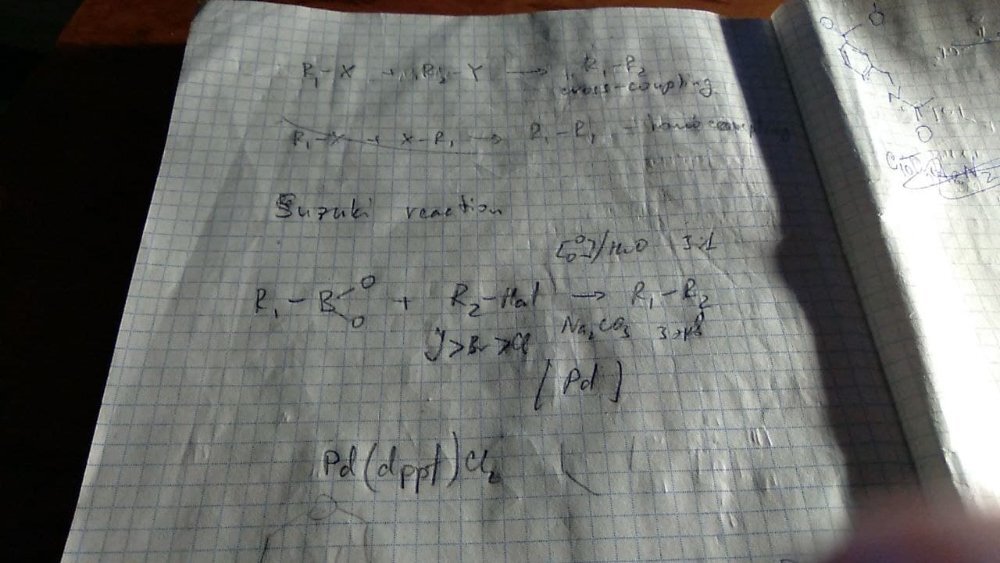 R₁-X + R₂-Y → R₁-R₂
cross-coupling
R₁-X + X-R₁ → R₁-R₁ - homocoupling
Suzuki reaction
[O O]/H₂O 3:1
R₁-B O O + R₂-Hal → R₁-R₂
J>Br>Cl Na₂CO₃ 3
[Pd]
Pd(dppf)Cl₂